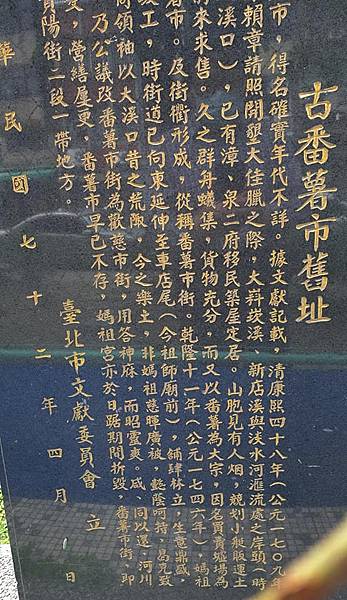 古番薯市舊址
市,得名確實年代不詳。據文獻記載,清康熙四十八年(公元一七〇九年
賴章請照開墾大佳臘之際,大料崁溪、新店溪與淡水河滙流處之岸頭(時
溪口),已有漳、泉二府移民築屋定居。山胞見有人烟,競划小艇販運土
來求售。久之群舟蟻集,貨物充分,而又以番薯為大宗,因名買賣墟場為
薯市。及街衢形成,從稱番薯市街。乾隆十一年(公元一七四六年),媽祖
竣工,時街道已向東延伸至車店尾(今祖師廟前),舖肆林立,生意鼎盛,
商領袖以大溪口昔之荒陬,今之樂土,非媽祖慈暉廣被,懿蔭呵持,曷克致
乃公議改番薯市街為歡慈市街,用答神庥,而昭靈爽。咸、同以還,河川
變,營繕屢更,番薯市早已不存,媽祖宮亦於日踞期間折毀,番薯市街、即
貴陽街二段一帶地方。
臺北市文獻委員會 立
華民國七十二年四月 日